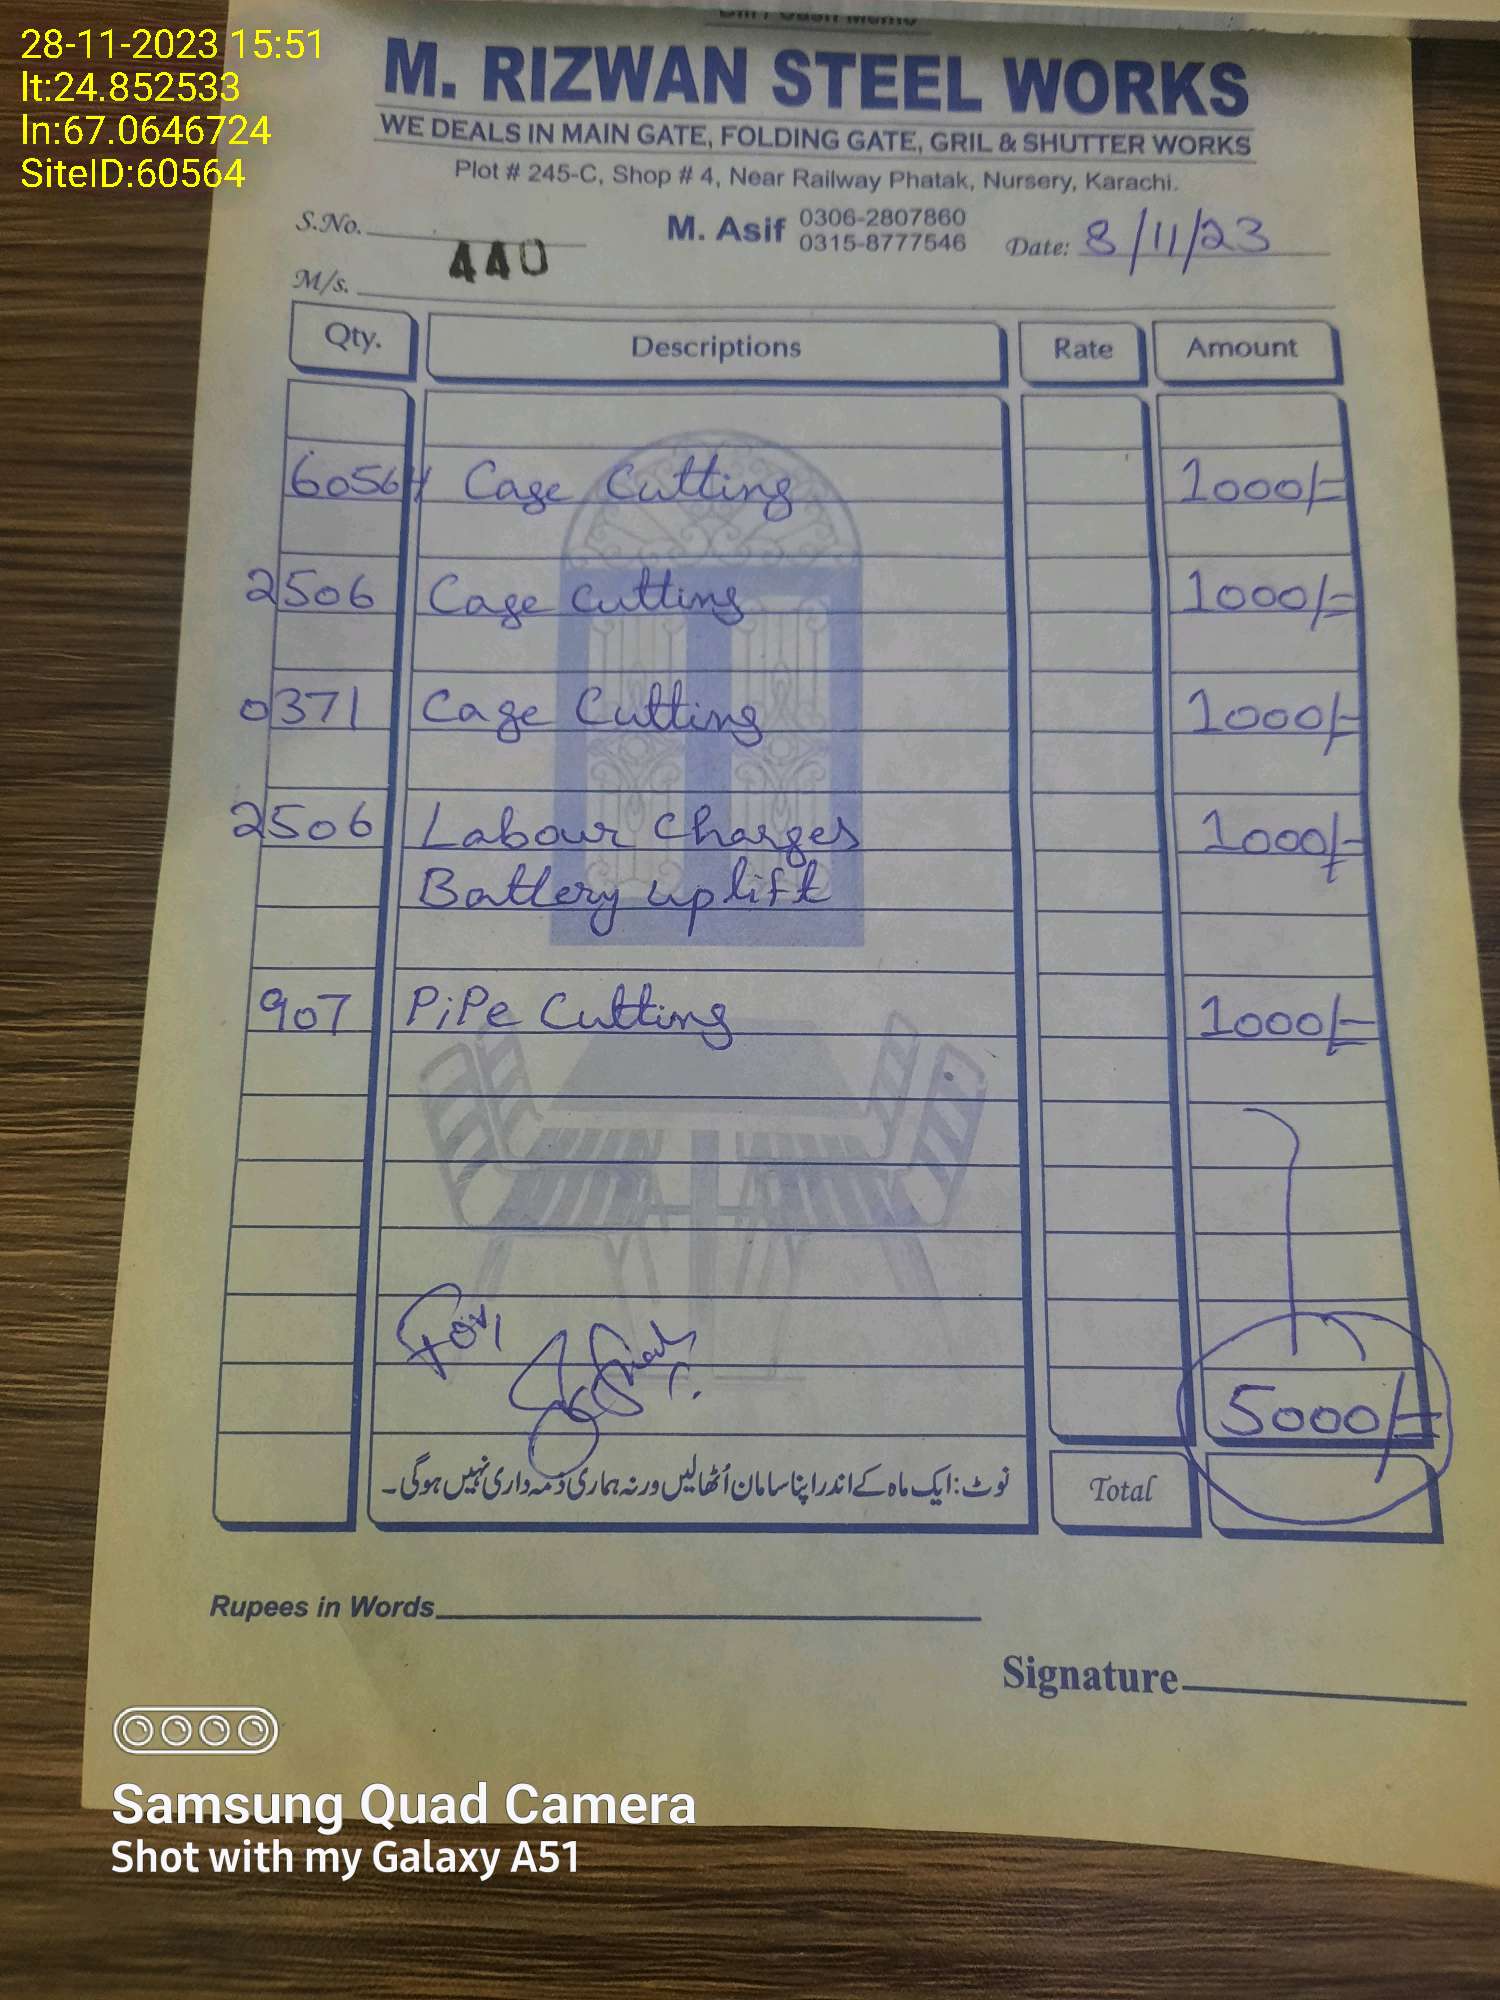 28-11-2023 15:51
lt:24.852533
ln:67.0646724
SiteID:60564
Bill / Cash Memo
M. RIZWAN STEEL WORKS
WE DEALS IN MAIN GATE, FOLDING GATE, GRIL & SHUTTER WORKS
Plot # 245-C, Shop # 4, Near Railway Phatak, Nursery, Karachi.
S.No. 440 M. Asif 0306-2807860
0315-8777546 Date: 8/11/23
M/s.
Qty. Descriptions Rate Amount
60564 Cage Cutting 1000/=
2506 Cage Cutting 1000/=
0371 Cage Cutting 1000/=
2506 Labour Charges 1000/=
Battery uplift
907 PiPe Cutting 1000/=
5000/=
نوٹ: ایک ماہ کے اندر اپنا سامان اُٹھالیں ورنہ ہماری ذمہ داری نہیں ہوگی۔
Total
Rupees in Words
Signature
Samsung Quad Camera
Shot with my Galaxy A51